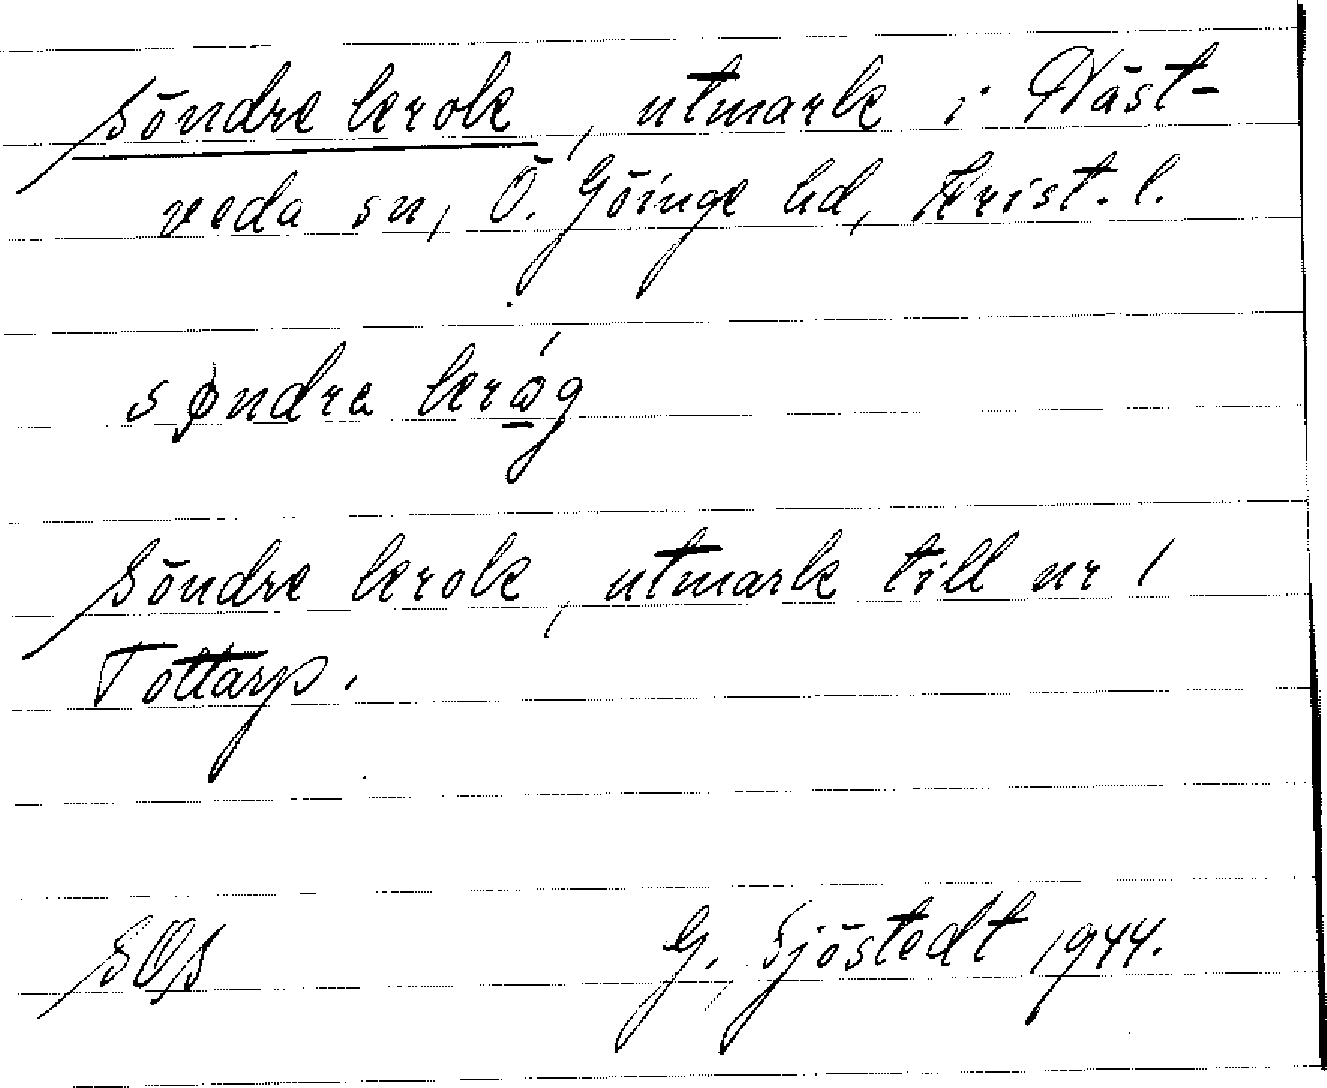 Söndre krok, utmark i Näst-
veda sn, Ö. Göinge hd, Krist. l.
søndra kråg
Söndre krok, utmark till nr 1
Tottarp.
SOS G. Sjöstedt 1944.